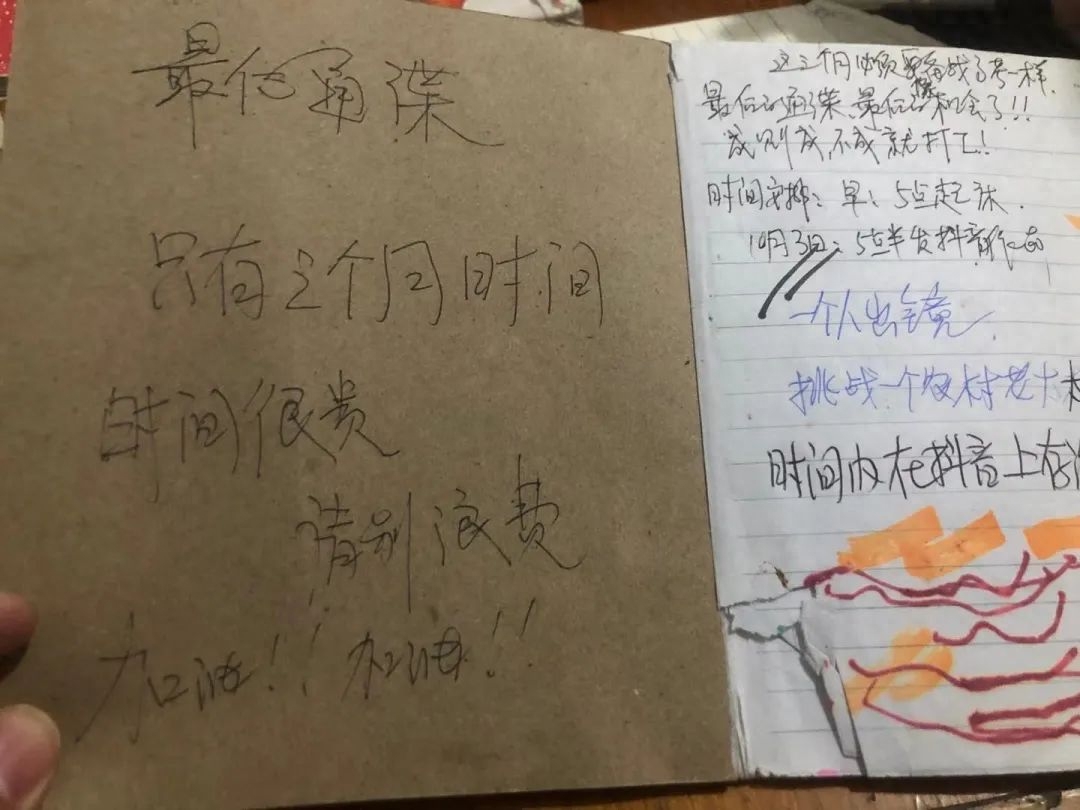 最后通牒
只有三个月时间
时间很贵
请别浪费
加油!! 加油!!
这三个月必须像备战高考一样.
最后的通牒、最后的机会了!!
成则成,不成就打工!
时间安排: 早: 5点起床.
10月3日: 5点半发抖音作品
一个人出镜
挑战一个农村
时间内在抖音上